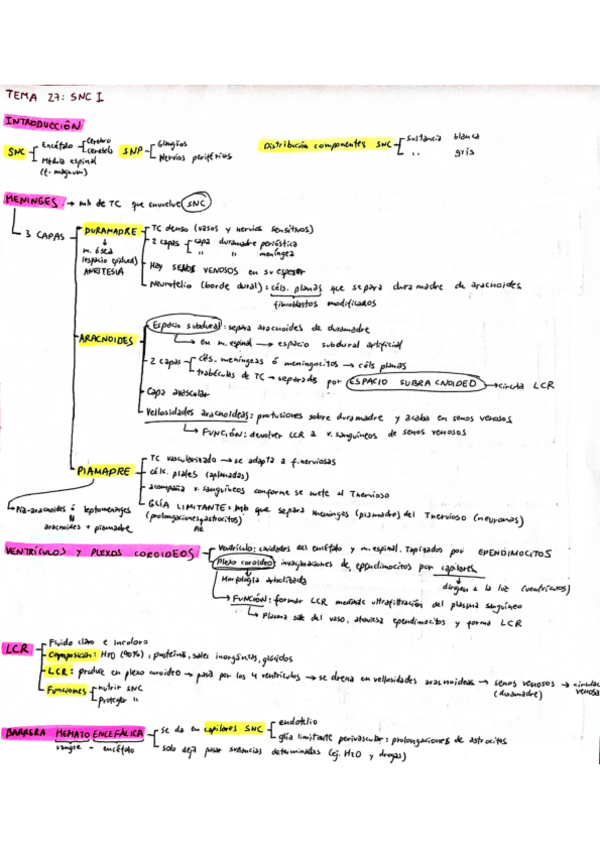 TEMA 27: SNC I
INTRODUCCIÓN
SNC Encéfalo Cerebro
cerebelo
Médula espinal
(f. magnum)
SNP Ganglios
Nervios periféricos
Distribución componentes SNC Sustancia blanca
" gris
MENINGES → mb de TC que envuelve SNC
3 CAPAS
DURAMADRE TC denso (vasos y nervios sensitivos)
2 capas capa duramadre perióstica
" " meníngea
Hay SENOS VENOSOS en su espesor
Neurotelio (borde dural): céls. planas que separa duramadre de aracnoides
fibroblastos modificados
m. ósea
(espacio epidural)
ANESTESIA
ARACNOIDES Espacio subdural: separa aracnoides de duramadre
en m. espinal → espacio subdural artificial
2 capas céls. meníngeas ó meningocitos → céls planas
trabéculas de TC → separadas por ESPACIO SUBARACNOIDEO → circula LCR
Capa avascular
Vellosidades aracnoideas: protusiones sobre duramadre y acaba en senos venosos
FUNCIÓN: devolver LCR a v. sanguíneos de senos venosos
PIAMADRE TC vascularizado → se adapta a f. nerviosas
céls. piales (aplanadas)
acompaña v. sanguíneos conforme se mete el Tnervioso
GLÍA LIMITANTE: mb que separa meninges (piamadre) del Tnervioso (neuronas)
(prolongaciones astrocitos)
Pie
Pia-aracnoides ó leptomeninges
aracnoides + piamadre
VENTRÍCULOS Y PLEXOS COROIDEOS Ventrículo: cavidades del encéfalo y m. espinal. Tapizados por EPENDIMOCITOS
Plexo coroideo: invaginaciones de ependimocitos por capilares
dirigen a la luz (ventrículos)
Morfología arbolizada
FUNCIÓN: formar LCR mediante ultrafiltración del plasma sanguíneo
Plasma sale del vaso, atraviesa ependimocitos y forma LCR
LCR Fluido claro e incoloro
Composición: H2O (90%), proteínas, sales inorgánicas, glúcidos
LCR: produce en plexo coroideo → pasa por los 4 ventrículos → se drena en vellosidades aracnoideas → senos venosos →
(duramadre)
Funciones nutrir SNC
proteger "
BARRERA HEMATO ENCEFÁLICA se da en capilares SNC endotelio
glía limitante perivascular: prolongaciones de astrocitos
sangre - encéfalo
solo deja pasar sustancias determinadas (ej. H2O y drogas)